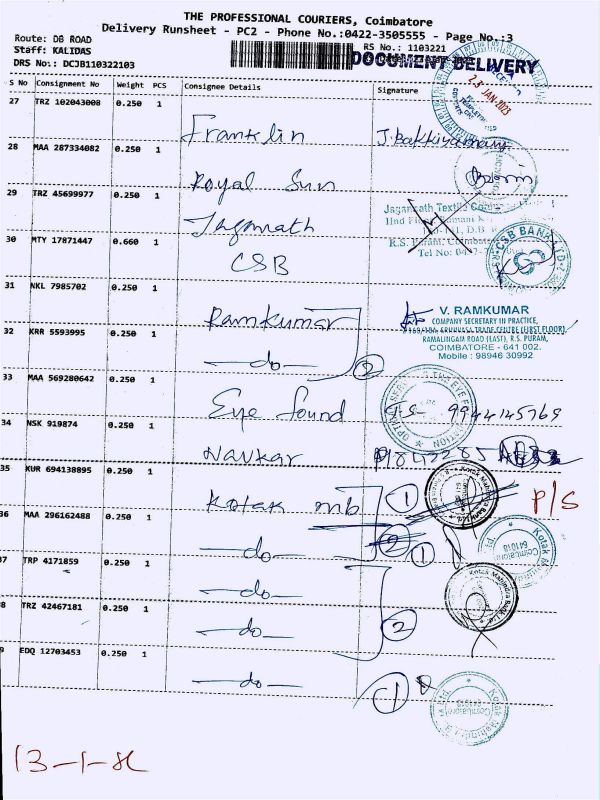 THE PROFESSIONAL COURIERS, Coimbatore
Delivery Runsheet - PC2 - Phone No.:0422-3505555 - Page No.:3
Route: DB ROAD
RS No.: 1103221
Staff: KALIDAS
DOCUMENT DELIVERY
DRS No.: DCJB110322103
23 JAN 2023
S No Consignment No Weight PCS Consignee Details Signature
27 TRZ 102043008 0.250 1
Franklin J. Bakkiyamani
28 MAA 287334082 0.250 1
Royal Sun
29 TRZ 45699977 0.250 1
Jagannath
Jagannath Textile
R.S. Puram, Coimbatore
Tel No:
30 MTY 17871447 0.660 1
CSB
CSB BANK LTD
31 NKL 7985702 0.250 1
Ramkumar
V. RAMKUMAR
COMPANY SECRETARY IN PRACTICE,
TRADE CENTRE (FIRST FLOOR)
RAMALINGAM ROAD (EAST), R.S. PURAM,
COIMBATORE - 641 002.
Mobile : 98946 30992
32 KRR 5593995 0.250 1
—do— 2
33 MAA 569280642 0.250 1
Eye found 9944145769
34 NSK 919874 0.250 1
Navkar
35 KUR 694138895 0.250 1
Kotak mb 1 P/S
Kotak Mahindra Bank Ltd.
36 MAA 296162488 0.250 1
—do— 2 1
Kotak Mahindra
Coimbatore
641018
37 TRP 4171859 0.250 1
—do—
Kotak Mahindra Bank Ltd.
38 TRZ 42467181 0.250 1
—do— 2
39 EDQ 12703453 0.250 1
—do— 1
Kotak Mahindra
Coimbatore
641018